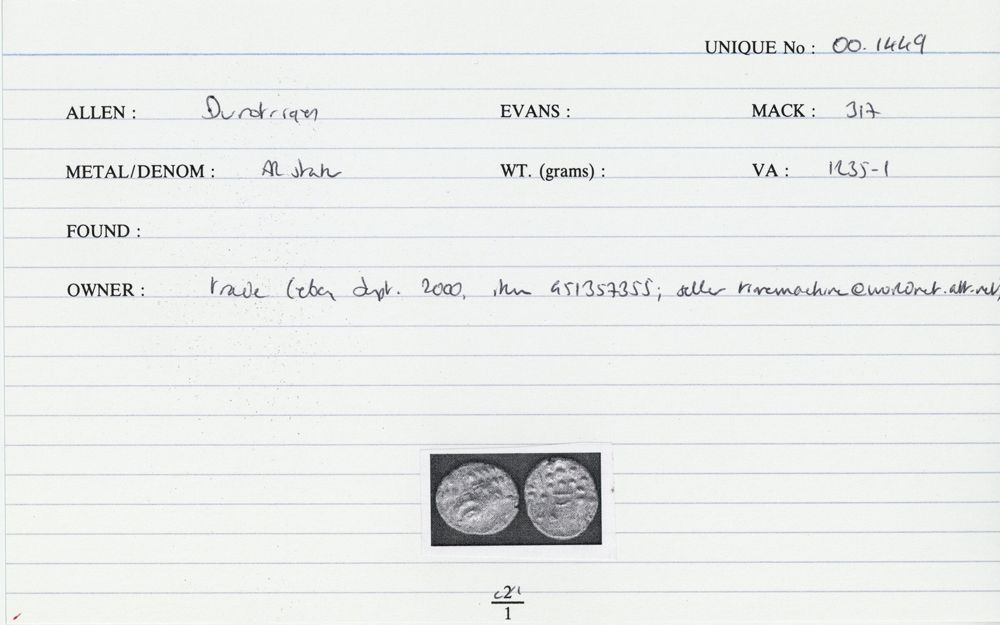 UNIQUE No : 00.1449
ALLEN : Durotrigan EVANS : MACK : 317
METAL/DENOM : AR stater WT. (grams) : VA : 1235-1
FOUND :
OWNER : trade (ebay Sept. 2000, item 451357355; seller timemachine@worldnet.att.net)
c2:1
1